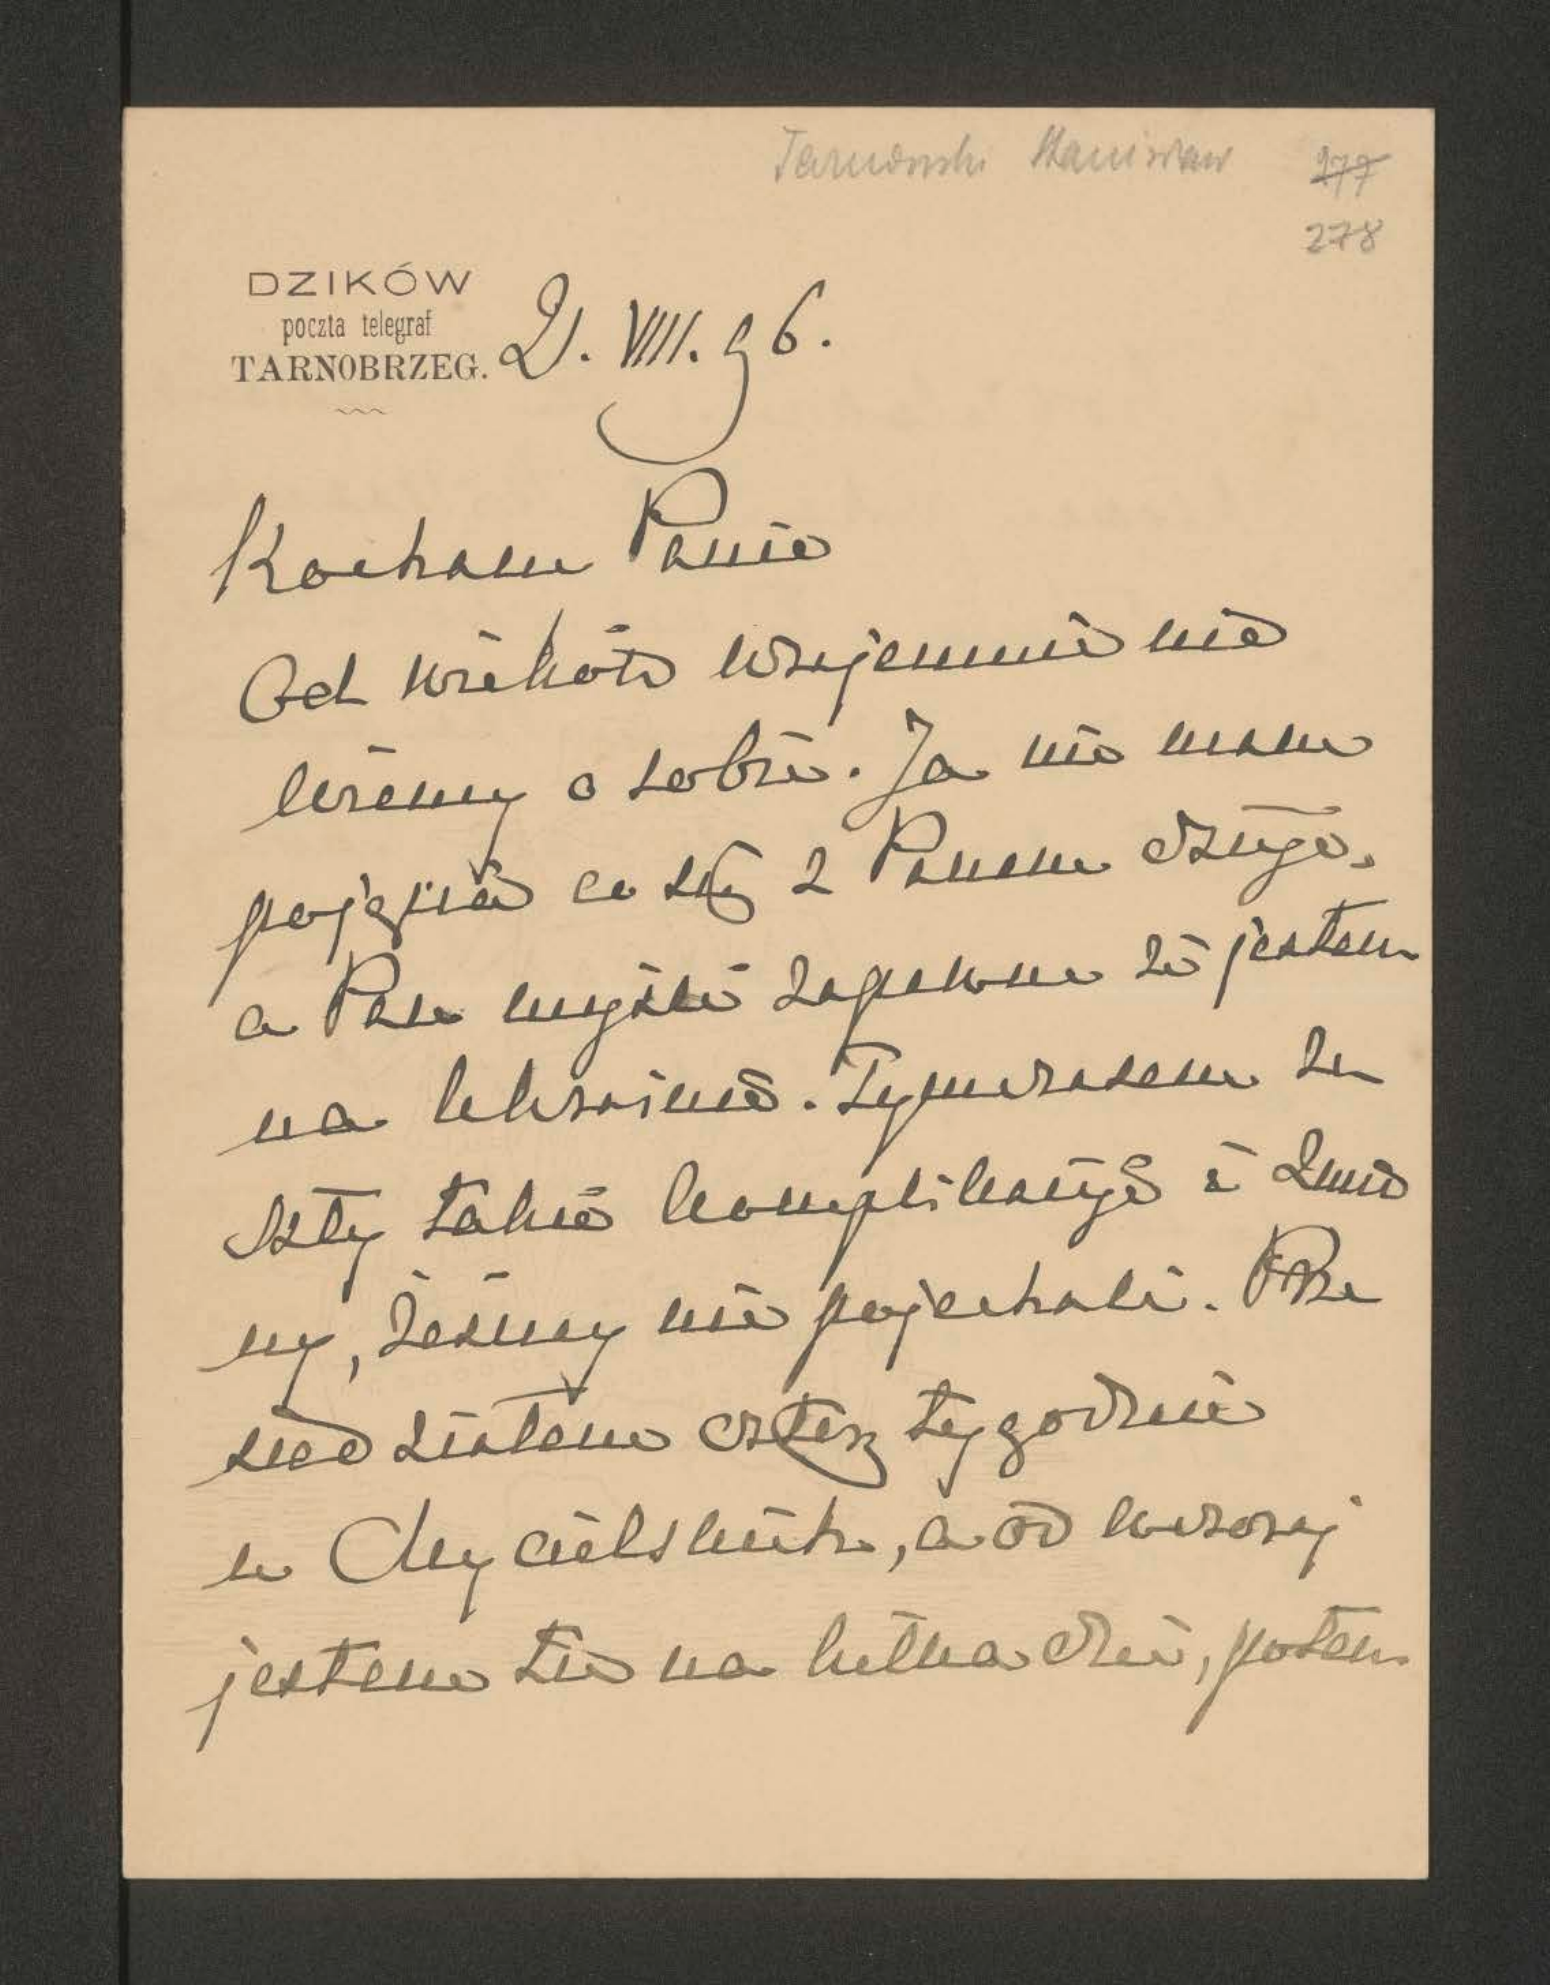 Tarnowski Stanisław 277
278
DZIKÓW
poczta telegraf
TARNOBRZEG.
21. VIII. 96.
Kochany Panie
Od wieków wzajemnie nie
wiemy o sobie. Ja nie mam
pojęcia co się z Panem dzieje,
a Pan myśli zapewne że jestem
na Ukrainie. Tymczasem za
szły takie komplikacye i zmia
ny, żeśmy nie pojechali. Prze
siedziałem cztery tygodnie
w, a od wczoraj
jestem tu na kilka dni, potem